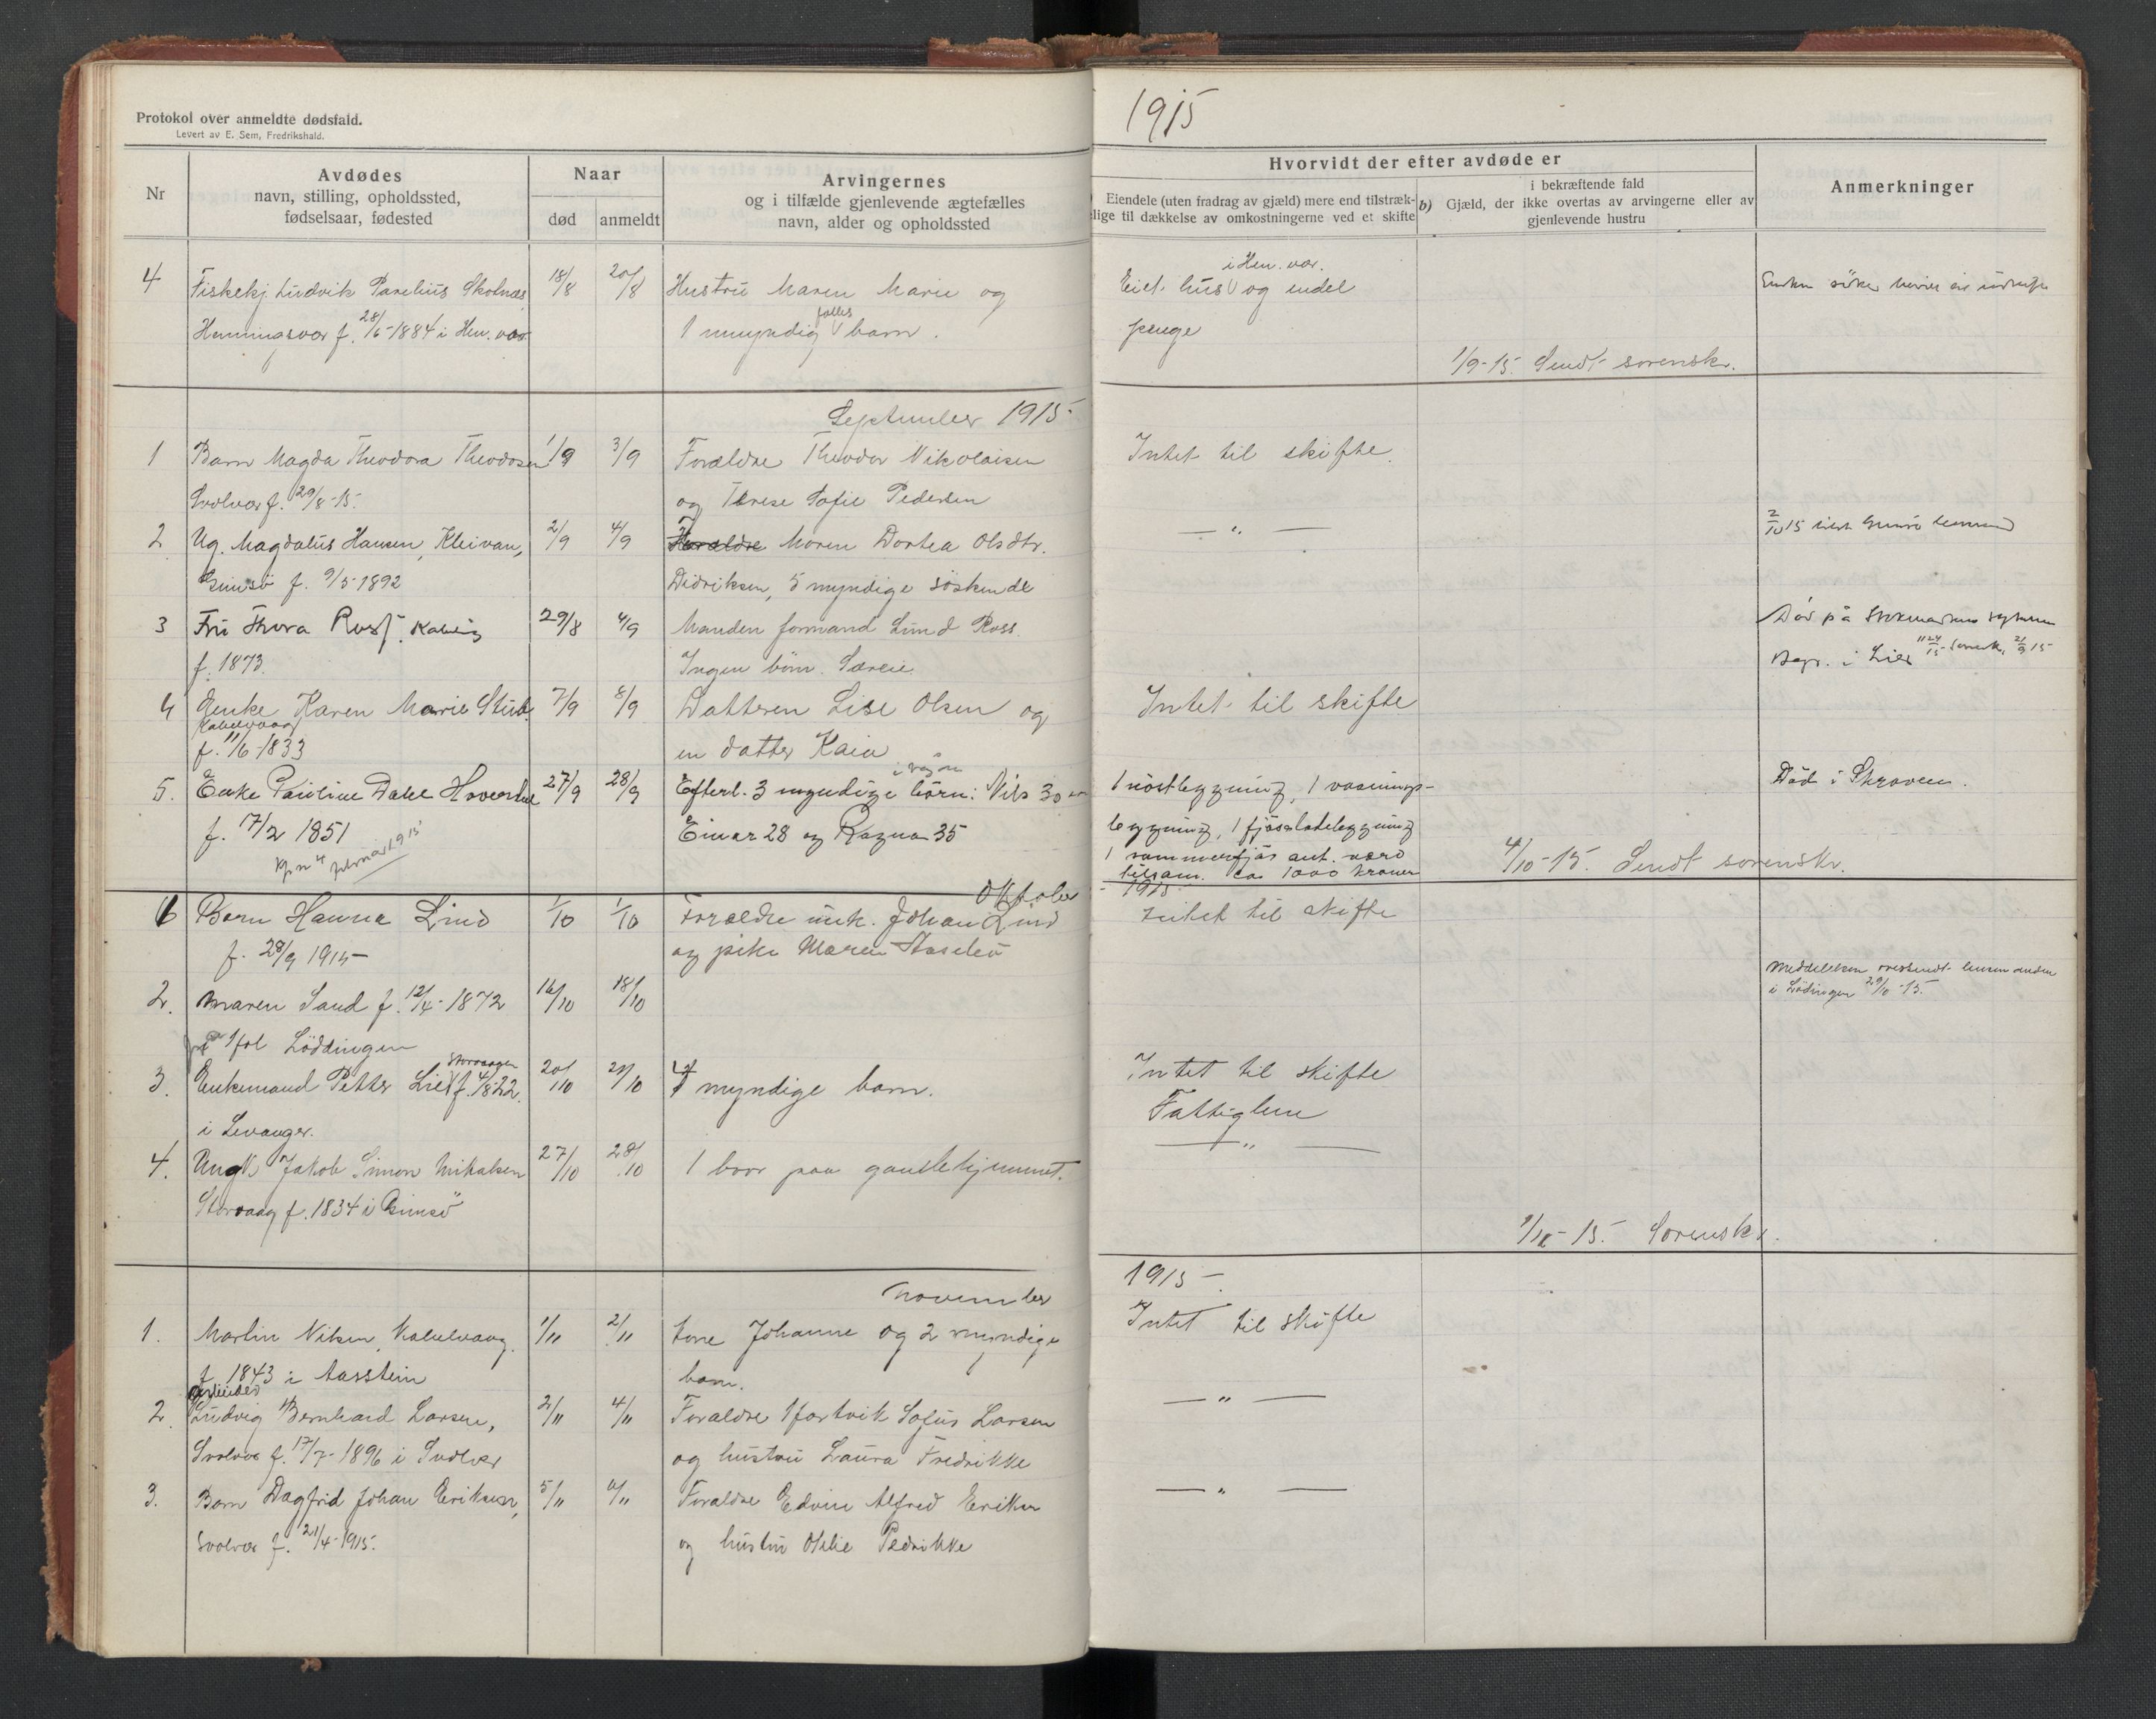 Protokol over anmeldte dødsfald.
Levert av E. Sem, Fredrikshald.
1915
Nr
Avdødes
navn, stilling, opholdssted,
fødselsaar, fødested
Naar
død
anmeldt
Arvingernes
og i tilfælde gjenlevende ægtefælles
navn, alder og opholdssted
Hvorvidt der efter avdøde er
Eiendele (uten fradrag av gjæld) mere end tilstræk-
lige til dækkelse av omkostningerne ved et skifte
b)
i bekræftende fald
Gjæld, der ikke overtas av arvingerne eller av
gjenlevende hustru
Anmerkninger
4 Fiskekj Ludvik Parelius Skolnæs 18/8 20/8 Hustru Maren Marie og
Henningsvær f. 28/6-1884 i Hen. vær 1 umyndig fælles barn.
Eiet hus i Hen. vær. og endel
penge
Enken söker
1/9-15. Sendt sorenskr.
September 1915
1 Barn Magda Theodora Theodosen 1/9 3/9 Forældre Theodor Nikolaisen Intet til skifte.
Svolvær f. 29/8-15. og Terese Sofie Pedersen
2 Ug. Magdalus Hansen, Kleivan, 2/9 4/9 Forældre Moren Dortea Olsdtr. — " —
Gimsö f. 9/5-1892 Didriksen, 5 myndige söskende
2/10 15
3 Fru Thora Ross. Kabelv 29/8 4/9 Manden formand Lund Ross.
f. 1873. Ingen börn. Særeie.
Död på Stokmarknes
i Lier
4 Enke Karen Marie Stub 7/9 8/9 Datteren Lise Olsen og Intet til skifte
Kabelvaag
f. 11/6-1833 en datter Kaia
5. Enke Pauline Dahl Hoverhol 27/9 28/9 Efterl. 3 myndige börn: Nils 30
f. 17/2 1851 Einar 28 og Ragna 35
februar 1915
1 nöstbygging, 1 vaanings-
bygging, 1 fjösladebygging
1 sommerfjös ant. værd
tilsam. ca 1000 kroner
Död i Skroven.
4/10-15. Sendt sorenskr.
Oktober 1915
1 Barn Hanna Lind 1/10 1/10 Forældre unk. Johan Lind Intet til skifte
f. 28/9 1915 og pike Maren
2. Maren Sand f. 12/4-1872 16/10 18/10
Löddingen
Meddelelsen oversendt lensmanden
i Lödingen 29/10-15.
3. Enkemand Petter Lie Storvaagen f. 4/8-22. 20/10 21/10 4 myndige barn. Intet til skifte
i Levanger. Fattiglem
4. Ungk. Jakob Simon Mikalsen 27/10 28/10 1 bror paa gamlehjemmet. — " —
Storvaag f. 1834 i Gimsö
1/11-15. Sorenskr.
November 1915
1. Martin Nilsen, Kabelvaag. 1/11 2/11 kone Johanne og 2 myndige Intet til skifte
f. 1843 i Aasstein barn.
2. Arbeider Ludvig Bernhard Larsen, 2/11 4/11 Forældre Hartvik Sofus Larsen — " —
Svolvær f. 17/7-1896 i Svolvær og hustru Laura Fredrikke
3. Barn Dagfrid Johan Eriksen, 5/11 6/11 Forældre Edvin Alfred Eriksen — " —
Svolvær f. 21/4-1915. og hustru Otelie Pedrikke